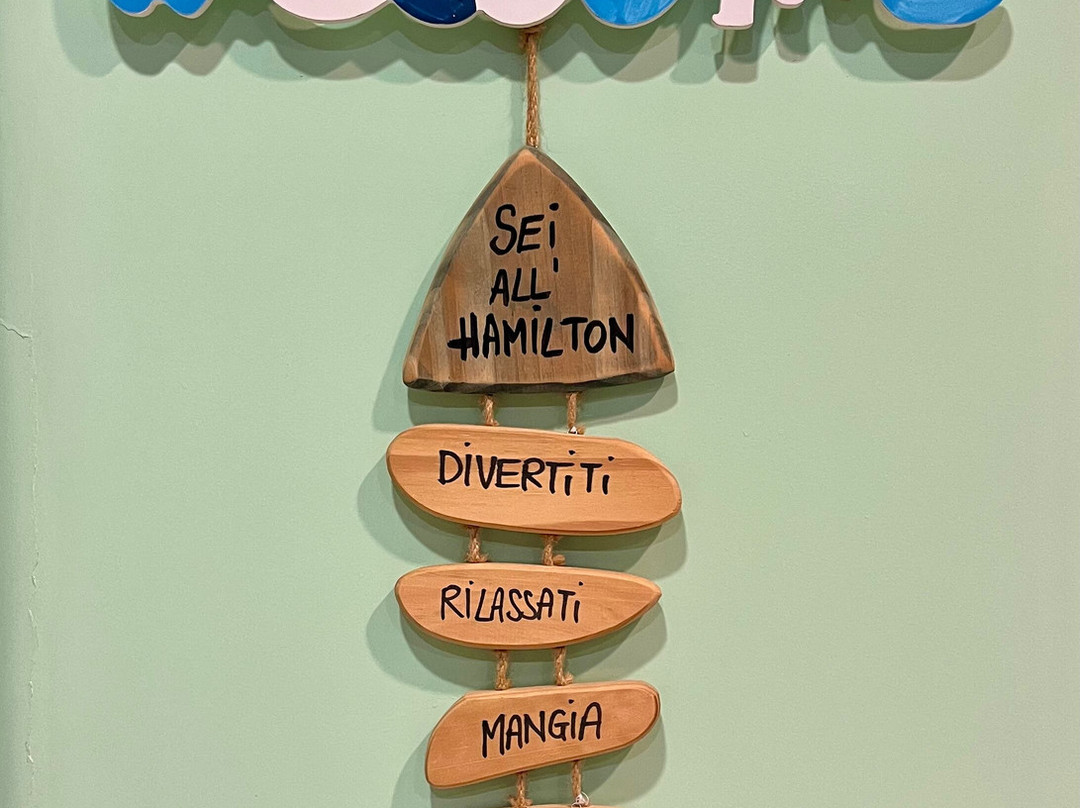 SEi
ALL'
HAMiLTON
DiVERTiTi
RiLASSATi
MANGiA